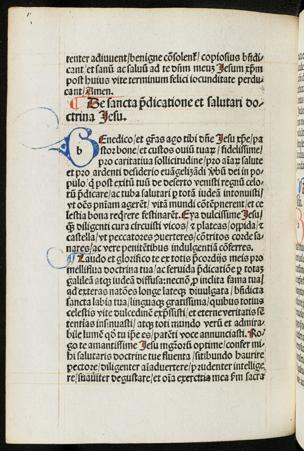 tenter adiuuent/benigne cōsolent᷑/copiosius bn̄di
cant/et sanū ac saluū ad te dn̄m meuꝫ Jesum xp̄m
post huius vite terminum felici iocunditate perdu-
cant/Amen.
¶ De sancta p̄dicatione et salutari do-
ctrina Jesu.
b Enedico/et gr̄as ago tibi dn̄e Jesu xp̄e/pa
stor bone/et custos ouiū tuaꝝ/fidelissime/
pro caritatiua sollicitudine/pro aīaꝝ salute
et pro ardenti desiderio euāgelizādi ꝟbū dei in po-
pulo/ꝗ post exitū tuū de deserto venisti regnū celo-
rū p̄dicare/ac tuba salutari p totā iudeā intonuisti/
vt oēs pn̄iam ageret/vitā mundi cōtēpnerent/et ce
lestia bona reqrere festinarēt. Eya dulcissime Jesu/
ꝗ diligenti cura circuisti vicos/⁊ plateas/opida/⁊
castella/vt peccatores puerteres/cōtritos corde sa-
nares/ac vere penitētibus indulgentiā cōferres.
Laudo et glorifico te ex totis p̄cordijs meis pro
melliflua doctrina tua/ac feruida p̄dicatiōe p totaꝫ
galileā atqꝫ iudeā diffusa: necnō p inclita fama tua/
ad exteras natōes longe lateqꝫ diuulgata/bn̄dicta
sancta labia tua/linguaqꝫ gratissima/quibus totius
celestis vite dulcedinē exp̄ssisti/et eterne veritatis sē
tentias insinuasti/atqꝫ toti mundo verū et admira-
bile lumē qd̄ tu ip̄e es/patēti voce annunciasti. Ro-
go te amantissime Jesu mgr̄oꝝ optime/confer mi-
hi salutaris doctrine tue fluenta/sitibundo haurire
pectore/diligenter aīaduertere/prudenter intellige
re/suauiter degustare/et oīa exercitia mea ꝑm sacra